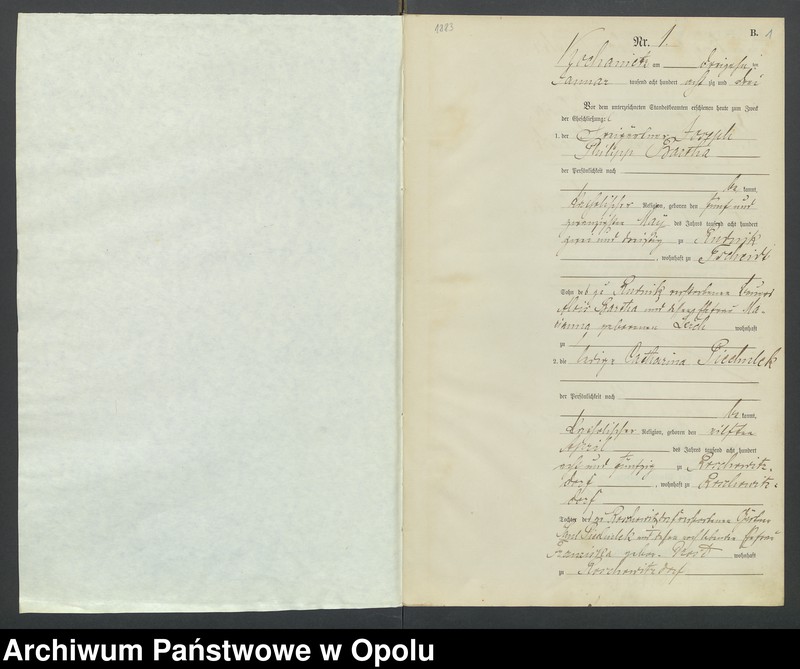 1883
B. 1
Nr. 1.
am
Januar tausend acht hundert acht zig und drei
Vor dem unterzeichneten Standesbeamten erschienen heute zum Zweck
der Eheschließung:
1. der Joseph
Philipp
der Persönlichkeit nach
be kannt,
katholischer Religion, geboren den fünf und
zwanzigsten May des Jahres tausend acht hundert
zwei und dreißig zu Rudnik
, wohnhaft zu
Sohn des zu Rudnik verstorbenen
und dessen Ehefrau Ma-
rianna geborenen wohnhaft
zu
2. die ledige Catharina Piechulek
der Persönlichkeit nach
be kannt,
katholischer Religion, geboren den elften
April des Jahres tausend acht hundert
acht und fünfzig zu Roschowitz-
dorf , wohnhaft zu Roschowitz-
dorf
Tochter des zu Roschowitzdorf verstorbenen Gärtner
Piechulek und dessen noch lebenden Ehefrau
Franciska gebor. wohnhaft
zu Roschowitzdorf
Archiwum Państwowe w Opolu